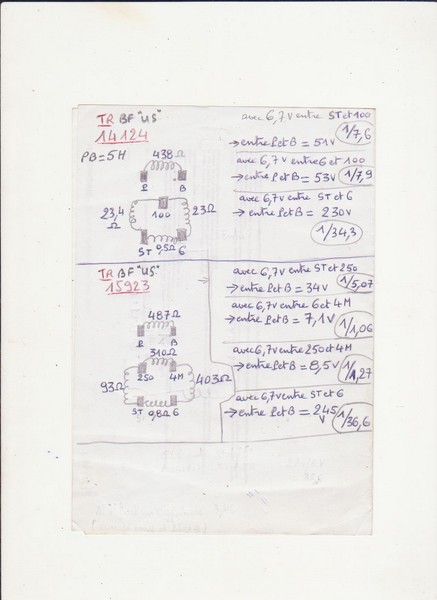 TR BF "US"
14124
PB=5H
438Ω
P B
23,4 Ω
100
23Ω
ST 0,5Ω 6
avec 6,7V entre ST et 100
→ entre P et B = 51V
1/7,6
avec 6,7V entre 6 et 100
→ entre P et B = 53V
1/7,9
avec 6,7V entre ST et 6
→ entre P et B = 230V
1/34,3
TR BF "US"
15923
487Ω
P B
310Ω
93Ω
250 4M
403Ω
ST 0,8Ω 6
avec 6,7V entre ST et 250
→ entre P et B = 34V
1/5,07
avec 6,7V entre 6 et 4M
→ entre P et B = 7,1V
1/1,06
avec 6,7V entre 250 et 4M
→ entre P et B = 8,5V
1/1,27
avec 6,7V entre ST et 6
→ entre P et B = 245 V
1/36,6